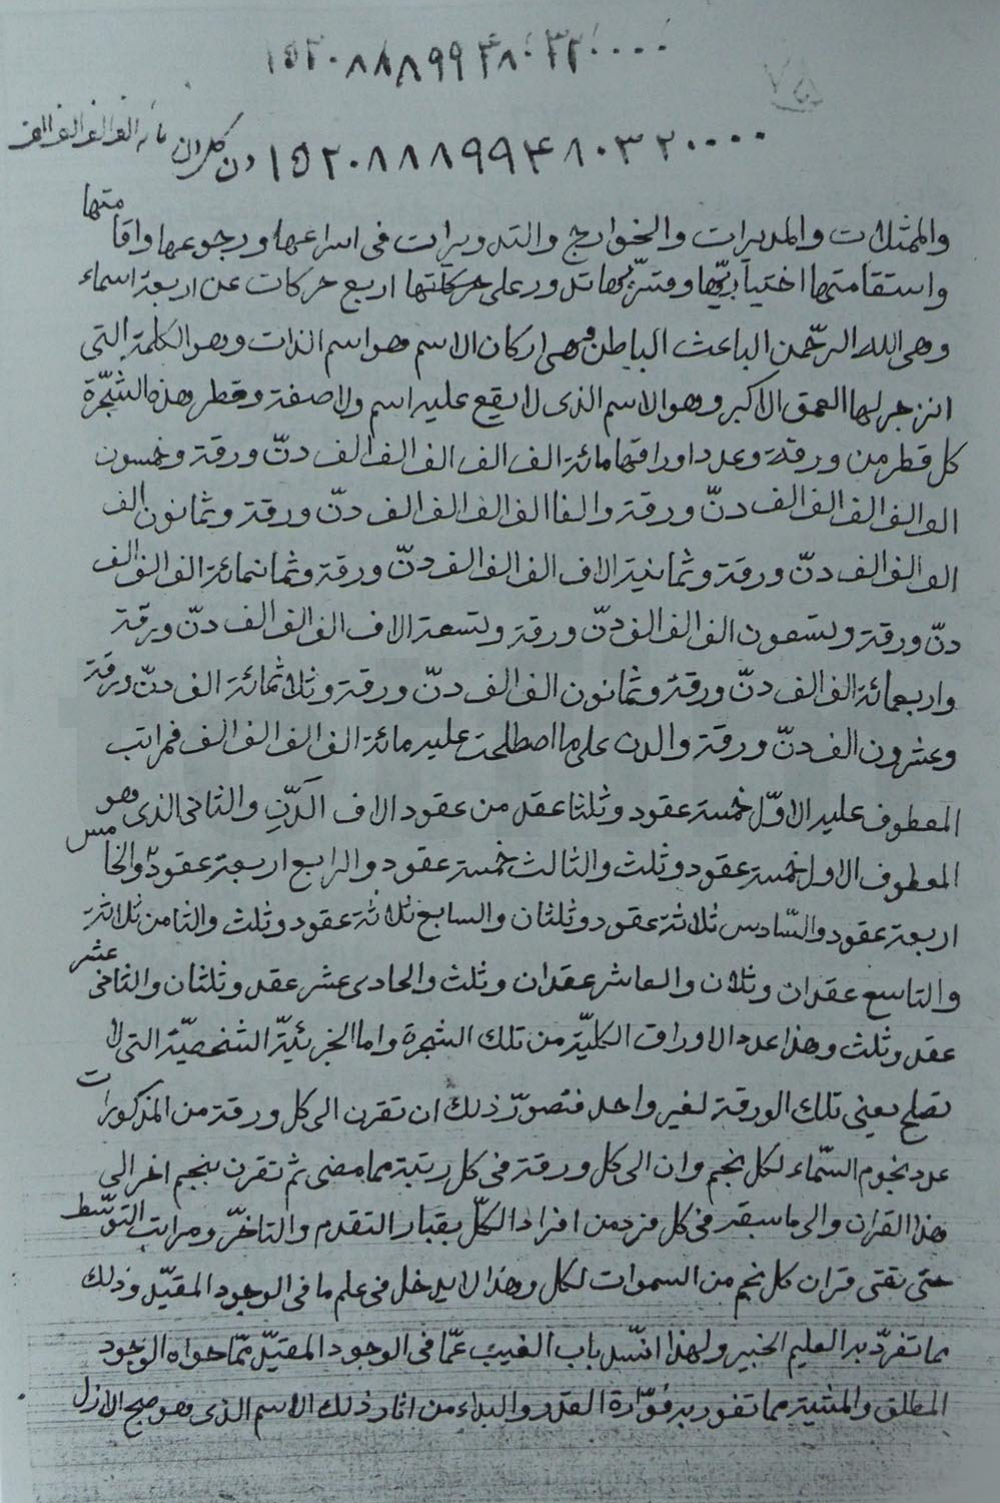 ١٥٢٠٨٨٨٩٩٤٨٠٣٢٠٠٠٠
٧٥
١٥٢٠٨٨٨٩٩٤٨٠٣٢٠٠٠٠ دن مائة الف الف الف الف
والممثلات والمديرات والخوارج والتدويرات فى اسراعها ورجوعها واقامتها
واستقامتها اختياريّها وقسريّها تدور على حركتها اربع حركات عن اربعة اسماء
وهى الله الرحمن الباعث الباطن وهى اركان الاسم هو اسم الذات وهو الكلمة التى
انزجر لها العمق الاكبر وهو الاسم الذى لا يقع عليه اسم ولا صفة وقطر هذه الشجرة
كل قطر من ورقة وعدد اوراقها مائة الف الف الف الف الف دنّ ورقة وخمسون
الف الف الف الف الف دنّ ورقة والفا الف الف الف الف دنّ ورقة وثمانون الف
الف الف الف دنّ ورقة وثمانية الاف الف الف الف دنّ ورقة وثمانمائة الف الف الف
دنّ ورقة وتسعون الف الف الف دنّ ورقة وتسعة الاف الف الف الف دنّ ورقة
واربعمائة الف الف دنّ ورقة وثمانون الف الف دنّ ورقة وثلاثمائة الف دنّ ورقة
وعشرون الف دنّ ورقة والدن على ما اصطلحت عليه مائة الف الف الف الف فمراتب
المعطوف عليه الاوّل خمسة عقود وثلثا عقد من عقود الاف الدّنّ والثانى الذى هو
المعطوف الاول خمسة عقود وثلث والثالث خمسة عقود والرابع اربعة عقود والخامس
اربعة عقود والسّادس ثلاثة عقود وثلثان والسابع ثلاثة عقود وثلث والثامن ثلاثة
والتاسع عقدان وثلثان والعاشر عقدان وثلث والحادى عشر عقد وثلثان والثانى عشر
عقد وثلث وهذا عدد الاوراق الكليّة من تلك الشجرة واما الجزئيّة الشخصيّة التى لا
تصلح يعنى تلك الورقة لغير واحد فتصوّر ذلك ان تقرن الى كل ورقة من المذكورات
عدد نجوم السّماء لكل نجم وان الى كل ورقة فى كل رتبة مما مضى ثم تقرن بنجم اخر الى
هذا القران والى ما سبقه فى كل فرد من افراد الكلّ بقبار التقدم والتاخّر ومراتب التوسّط
حتى تفنى قران كل نجم من السموات لكل وهذا لا يدخل فى علم ما فى الوجود المقيّد وذلك
مما تفرّد به العليم الخبير ولهذا انسد باب الغيب عمّا فى الوجود المقيّد ممّا حواه الوجود
المطلق والمشية مما تفور به فوّارة القدر والبداء من اثار ذلك الاسم الذى هو صبح الازل